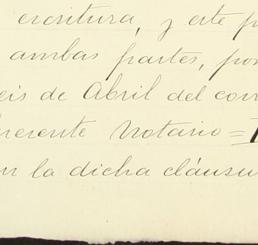 escritura, y este
ambas partes, por
eis de Abril del cor
presente Notario =
on la dicha cláusu